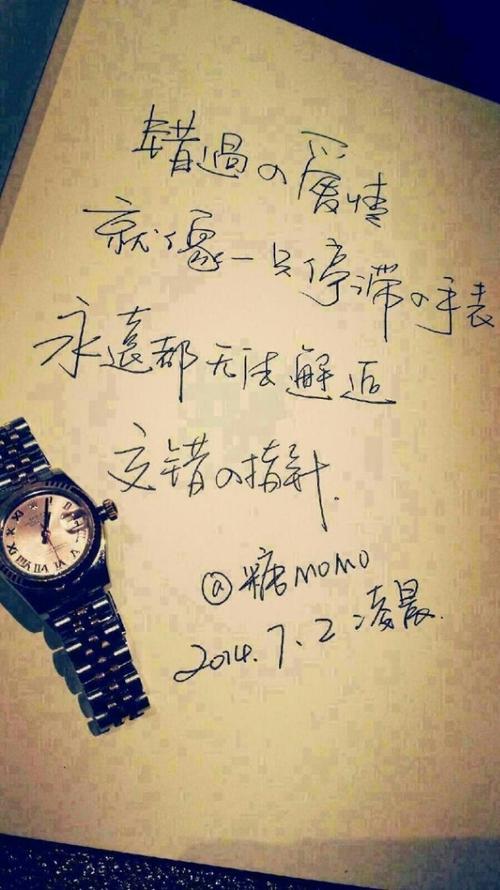 错過の爱情
就像一只停滞の手表
永遠都无法邂逅
交错の指针.
@糖momo
2014.7.2凌晨.